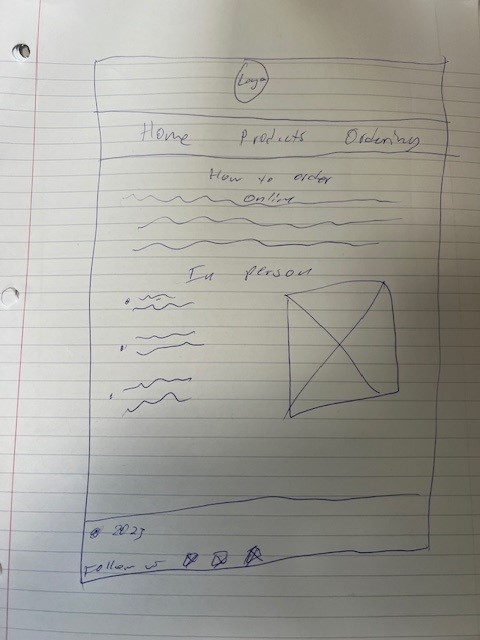 Logo
Home Products Ordering
How to order
Online
In person
© 2023
Follow us